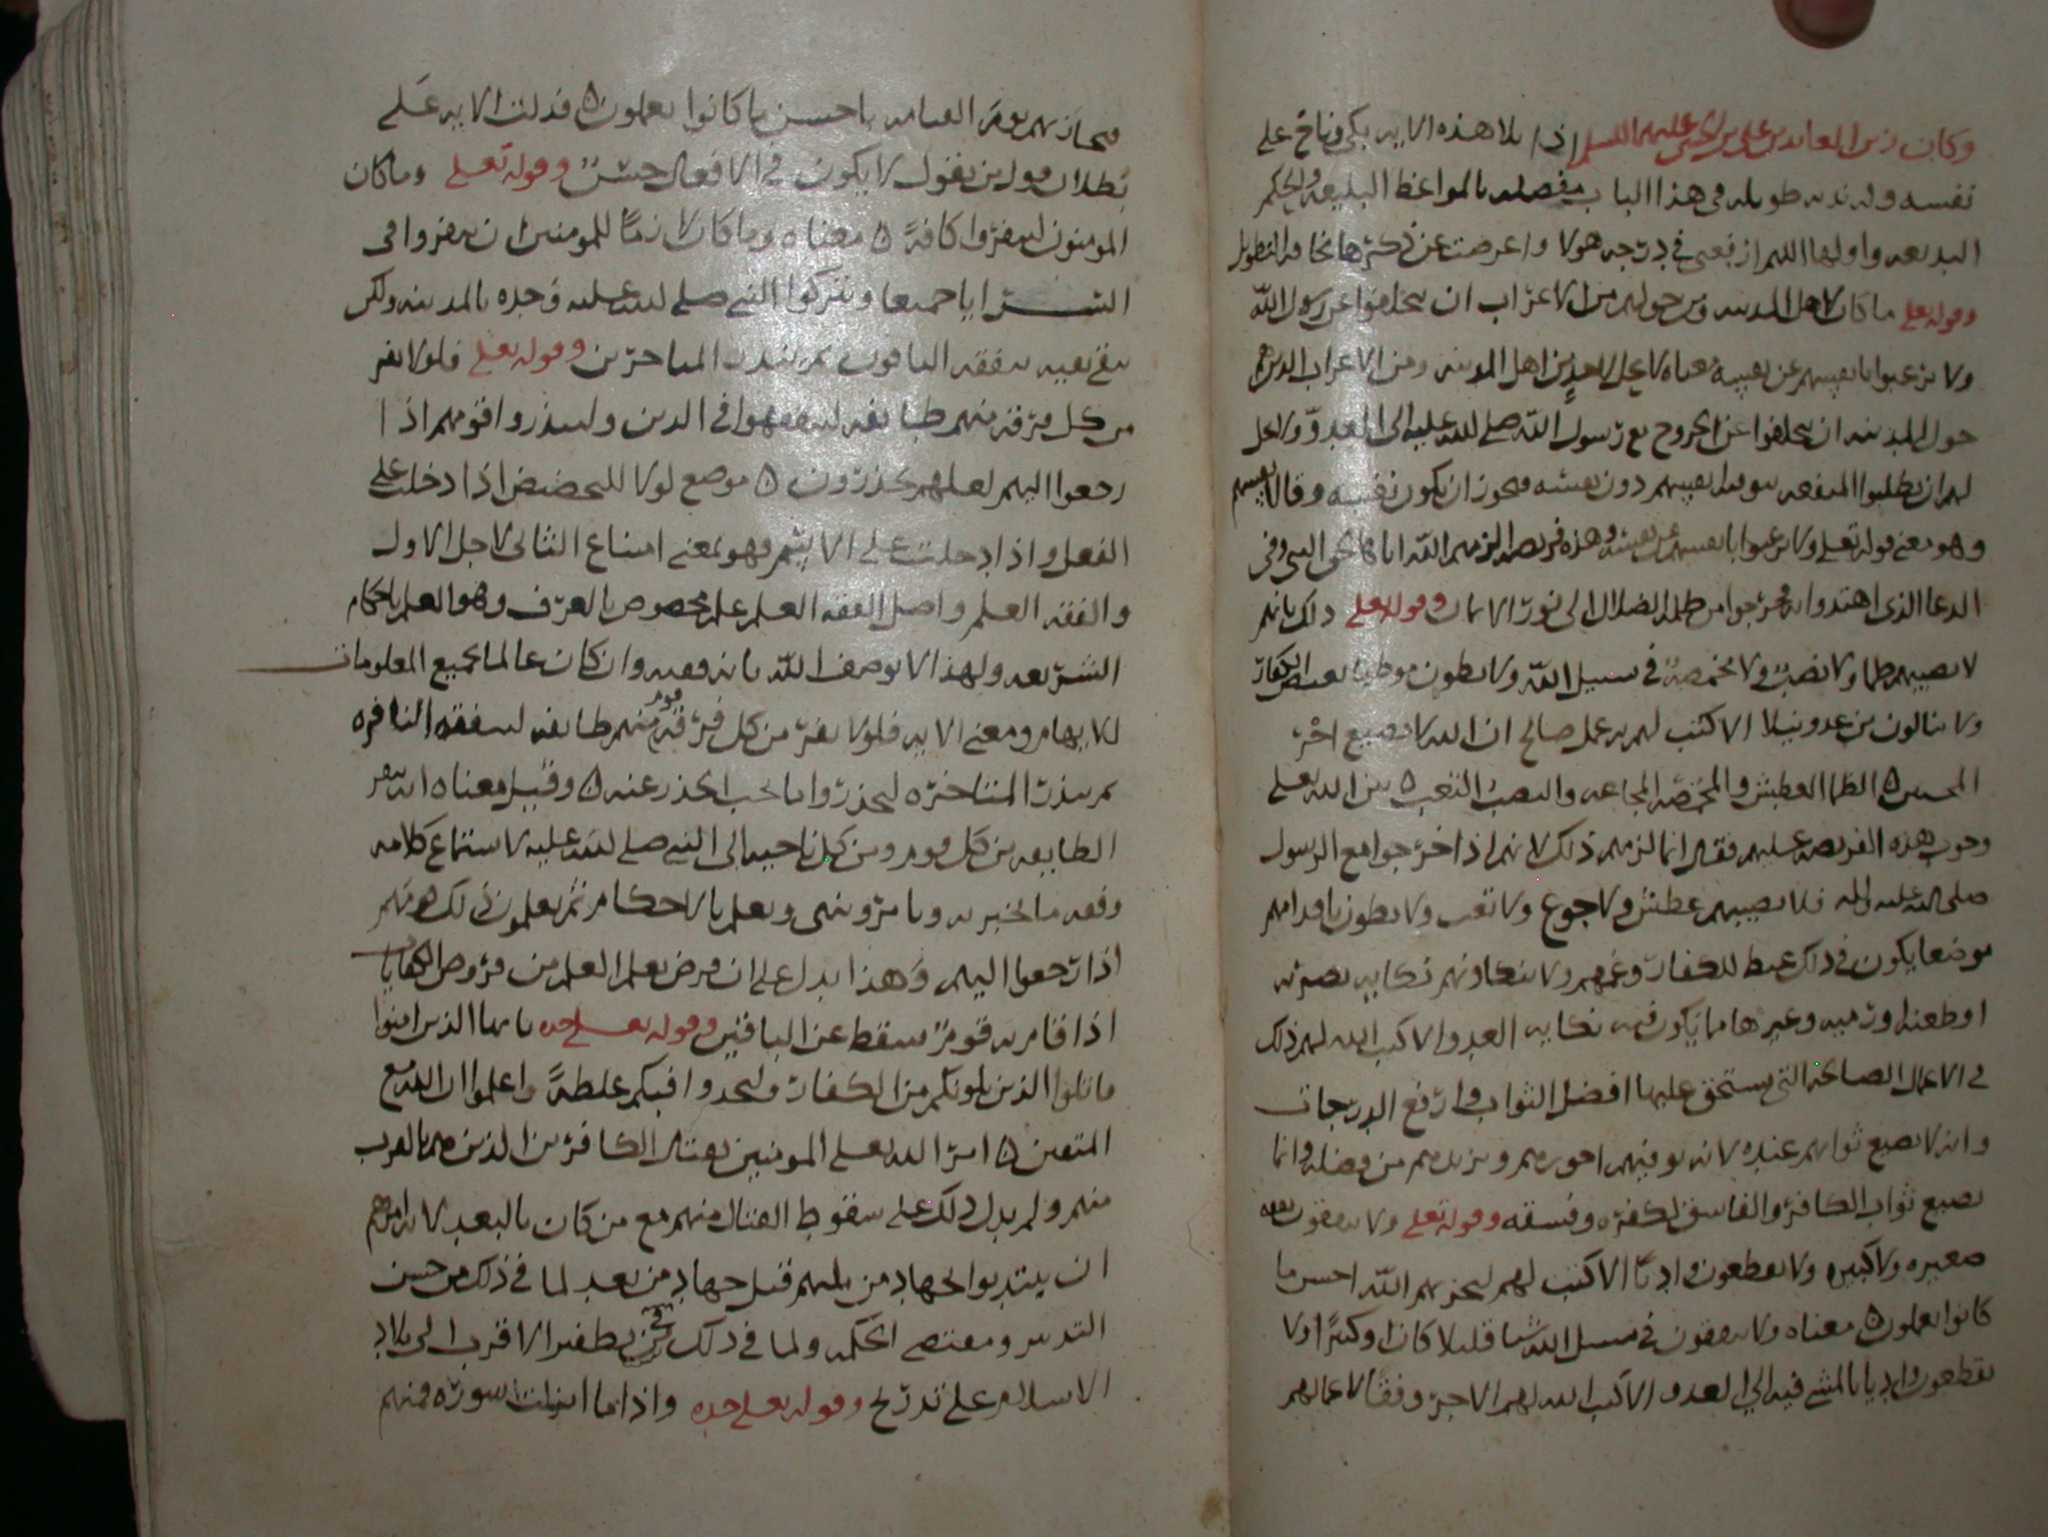 وكان زين العابدين علي بن الحسين عليهم السلم اذا تلا هذه الايه بكى وناح على
نفسه وله ندبه طويله في هذا الباب مفصله بالمواعظ البليغه والحكم
البديعه واولها اللهم ارفعني في درجه هولا واعرضت عن ذكرها مخافه التطويل
وقوله تعلى ما كان لاهل المدينه ومن حولهم من الاعراب ان يتخلفوا عن رسول الله
ولا يرغبوا بانفسهم عن نفسه معناه لا يحل لاحد من اهل المدينه ومن الاعراب الذين هم
حول المدينه ان يتخلفوا عن الخروج مع رسول الله صلى الله عليه الى العدو ولا يحل
لهم ان يطلبوا المنفعه بتوقيه انفسهم دون نفسه
وهو معنى قوله تعلى ولا يرغبوا بانفسهم عن نفسه وهذه فريضه الزمهم الله اياها لحق النبي وفي
الدعا الذي اهتدوا به فخرجوا من ظلمه الضلال الى نور الايمان وقوله تعلى ذلك بانهم
لا يصيبهم ظما ولا نصب ولا مخمصه في سبيل الله ولا يطون موطيا يغيض الكفار
ولا ينالون من عدو نيلا الا كتب لهم به عمل صالح ان الله لا يضيع اجر
المحسنين الظما العطش والمخمصه المجاعه والنصب التعب بين الله تعلى
وجوب هذه الفريضه عليهم فقال انما لزمهم ذلك لانهم اذا خرجوا مع الرسول
صلى الله عليه واله فلا يصيبهم عطش ولا جوع ولا تعب ولا يطون باقدامهم
موضعا يكون في ذلك غيظ للكفار وغمهم ولا ينكاونهم نكايه بضربه
او طعنه او رميه وغيرها مما يكون فيه نكايه العدو الا كتب الله لهم ذلك
في الاعمال الصالحه التي يستحق عليها افضل الثواب وارفع الدرجات
وانه لا يضيع ثوابهم عنده لانه يوفيهم اجورهم ويزيدهم من فضله وانما
يضيع ثواب الكافر والفاسق لكفره وفسقه وقوله تعلى ولا ينفقون نفقه
صغيره ولا كبيره ولا يقطعون واديا الا كتب لهم ليجزيهم الله احسن ما
كانوا يعملون معناه ولا ينفقون في سبيل الله شيا قليلا كان او كثيرا ولا
يقطعون واديا بالمشي فيه الى العدو الا كتب الله لهم الاجر وفقا لاعمالهم
فيجازيهم يوم القيامه باحسن ما كانوا يعملون فدلت الايه على
بطلان قول من يقول لا يكون في الافعال حسن وقوله تعلى وما كان
المومنون لينفروا كافه معناه وما كان لازما للمومنين ان ينفروا في
السرايا جميعا ويتركوا النبي صلى الله عليه وحده بالمدينه ولكن
يبقى بقيه ليتفقه الباقون ثم لينذر المتاخرين وقوله تعلى فلولا نفر
من كل فرقه منهم طايفه ليتفقهوا في الدين ولينذروا قومهم اذا
رجعوا اليهم لعلهم يحذرون موضع لولا للتحضيض اذا دخلت على
الفعل واذا دخلت على الاسم فهو بمعنى امتناع الثاني لاجل الاول
والفقه العلم واصل الفقه العلم علم مخصوص بالعرف وهو العلم باحكام
الشريعه ولهذا لا يوصف الله بانه فقيه وان كان عالما بجميع المعلومات
للايهام ومعنى الايه فلولا نفر من كل فرقه قوم منهم طايفه ليتفقه النافره
ثم ينذر المتاخره ليحذروا ما يجب الحذر عنه وقيل معناه انه نفر
الطايفه من كل قوم ومن كل ناحيه الى النبي صلى الله عليه لاستماع كلامه
وفقه ما يخبر به ويامر وينهى ويعلم بالاحكام ثم يعلمون ذلك قومهم
اذا رجعوا اليهم وهذا يدل على ان فرض تعلم العلم من فروض الكفايات
اذا قام به قوم سقط عن الباقين وقوله تعلى جده يا ايها الذين امنوا
قاتلوا الذين يلونكم من الكفار وليجدوا فيكم غلظه واعلموا ان الله مع
المتقين امر الله تعلى المومنين بقتال الكافرين الذين هم بالقرب
منهم ولم يدل ذلك على سقوط القتال منهم مع من كان بالبعد لانه امرهم
ان يبتديوا بجهاد من يليهم قبل جهاد من بعد لما في ذلك من حسن
التدبير ومقتضى الحكمه ولما في ذلك الاقرب الى بلاد
الاسلام على تدريج وقوله تعلى جده واذا ما انزلت سوره فمنهم